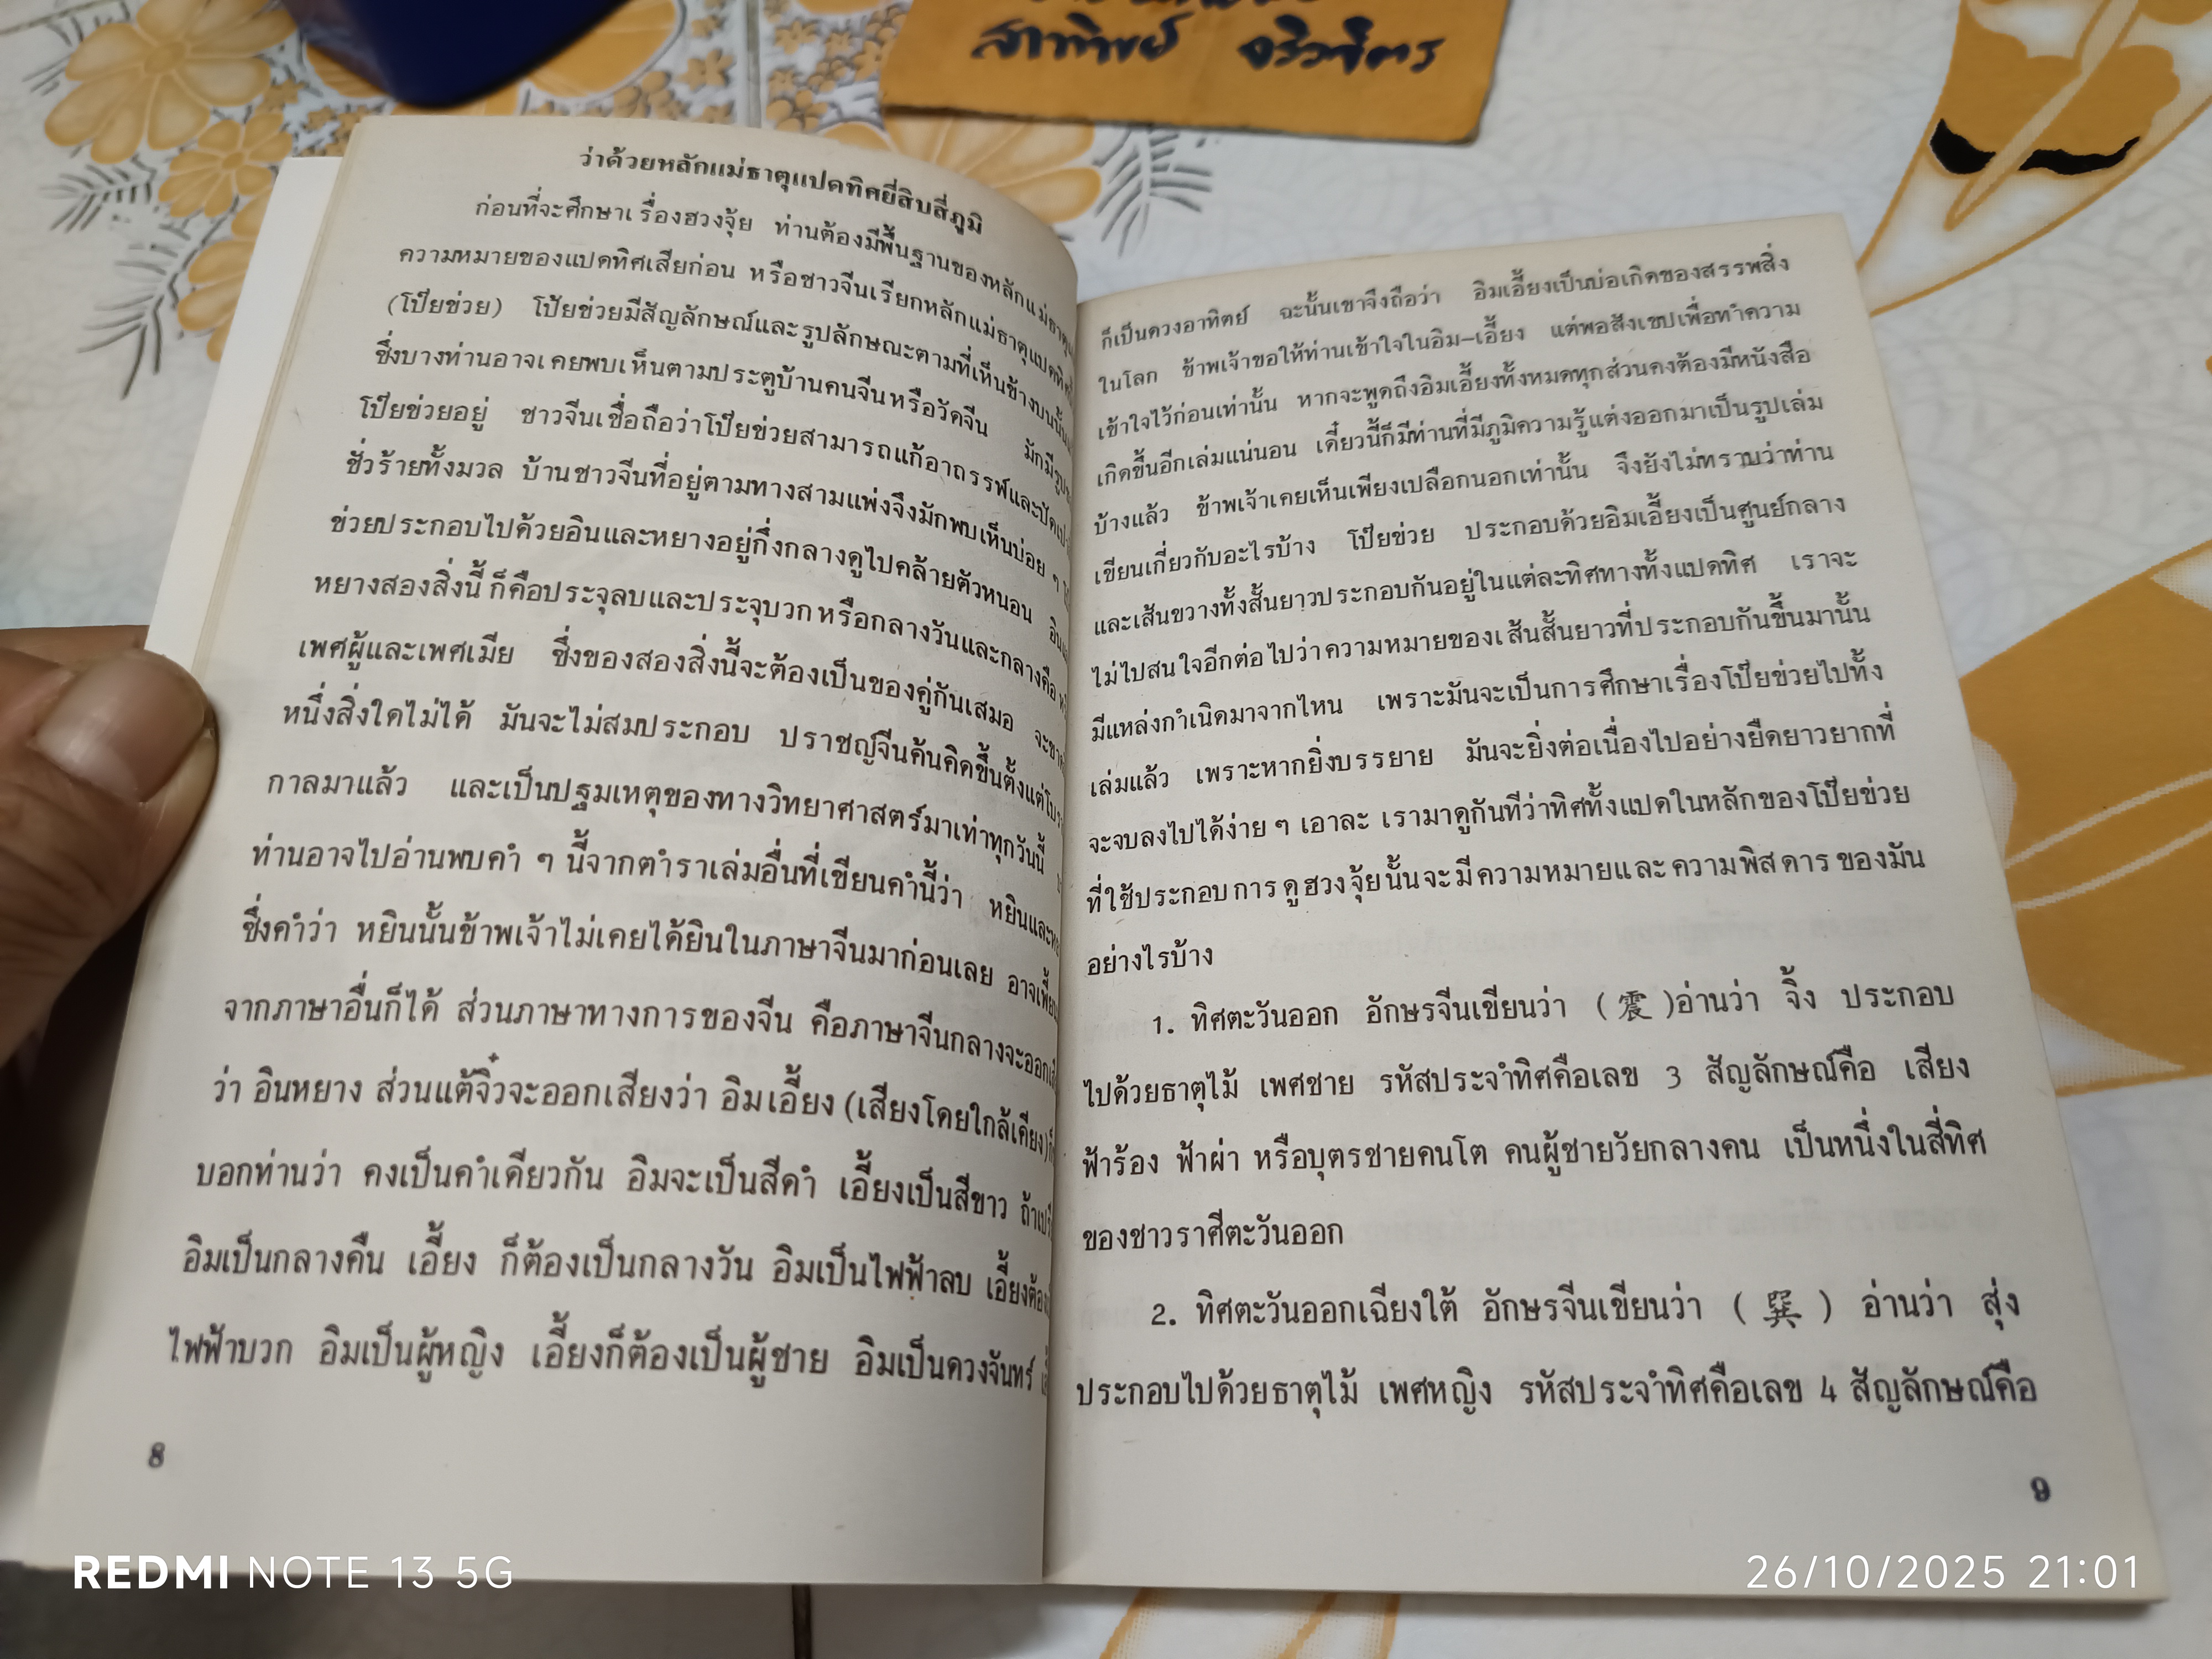 สาทิพย์
ว่าด้วยหลักแม่ธาตุแปดทิศยี่สิบสี่ภูมิ
ก่อนที่จะศึกษาเรื่องฮวงจุ้ย ท่านต้องมีพื้นฐานของหลักแม่ธาตุ
ความหมายของแปดทิศเสียก่อน หรือชาวจีนเรียกหลักแม่ธาตุแปดทิศ
(โป๊ยข่วย) โป๊ยข่วยมีสัญลักษณ์และรูปลักษณะตามที่เห็นข้างบนนั้น
ซึ่งบางท่านอาจเคยพบเห็นตามประตูบ้านคนจีนหรือวัดจีน มักมีรูป
โป๊ยข่วยอยู่ ชาวจีนเชื่อถือว่าโป๊ยข่วยสามารถแก้อาถรรพ์และปัดเป่า
ชั่วร้ายทั้งมวล บ้านชาวจีนที่อยู่ตามทางสามแพ่งจึงมักพบเห็นบ่อย ๆ
ข่วยประกอบไปด้วยอินและหยางอยู่กึ่งกลางดูไปคล้ายตัวหนอน
หยางสองสิ่งนี้ ก็คือประจุลบและประจุบวก หรือกลางวันและกลางคืน
เพศผู้และเพศเมีย ซึ่งของสองสิ่งนี้จะต้องเป็นของคู่กันเสมอ จะขาด
หนึ่งสิ่งใดไม่ได้ มันจะไม่สมประกอบ ปราชญ์จีนค้นคิดขึ้นตั้งแต่
กาลมาแล้ว และเป็นปฐมเหตุของทางวิทยาศาสตร์มาเท่าทุกวันนี้
ท่านอาจไปอ่านพบคำ ๆ นี้จากตำราเล่มอื่นที่เขียนคำนี้ว่า หยินและ
ซึ่งคำว่า หยินนั้นข้าพเจ้าไม่เคยได้ยินในภาษาจีนมาก่อนเลย อาจเพี้ยน
จากภาษาอื่นก็ได้ ส่วนภาษาทางการของจีน คือภาษาจีนกลางจะออก
ว่า อินหยาง ส่วนแต้จิ๋วจะออกเสียงว่า อิมเอี้ยง (เสียงโดยใกล้เคียง)
บอกท่านว่า คงเป็นคำเดียวกัน อิมจะเป็นสีดำ เอี้ยงเป็นสีขาว
อิมเป็นกลางคืน เอี้ยง ก็ต้องเป็นกลางวัน อิมเป็นไฟฟ้าลบ เอี้ยงต้อง
ไฟฟ้าบวก อิมเป็นผู้หญิง เอี้ยงก็ต้องเป็นผู้ชาย อิมเป็นดวงจันทร์
8
ก็เป็นดวงอาทิตย์ ฉะนั้นเขาจึงถือว่า อิมเอี้ยงเป็นบ่อเกิดของสรรพสิ่ง
ในโลก ข้าพเจ้าขอให้ท่านเข้าใจในอิม-เอี้ยง แต่พอสังเขปเพื่อทำความ
เข้าใจไว้ก่อนเท่านั้น หากจะพูดถึงอิมเอี้ยงทั้งหมดทุกส่วนคงต้องมีหนังสือ
เกิดขึ้นอีกเล่มแน่นอน เดี๋ยวนี้ก็มีท่านที่มีภูมิความรู้แต่งออกมาเป็นรูปเล่ม
บ้างแล้ว ข้าพเจ้าเคยเห็นเพียงเปลือกนอกเท่านั้น จึงยังไม่ทราบว่าท่าน
เขียนเกี่ยวกับอะไรบ้าง โป๊ยข่วย ประกอบด้วยอิมเอี้ยงเป็นศูนย์กลาง
และเส้นขวางทั้งสั้นยาวประกอบกันอยู่ในแต่ละทิศทางทั้งแปดทิศ เราจะ
ไม่ไปสนใจอีกต่อไปว่าความหมายของเส้นสั้นยาวที่ประกอบกันขึ้นมานั้น
มีแหล่งกำเนิดมาจากไหน เพราะมันจะเป็นการศึกษาเรื่องโป๊ยข่วยไปทั้ง
เล่มแล้ว เพราะหากยิ่งบรรยาย มันจะยิ่งต่อเนื่องไปอย่างยืดยาวยากที่
จะจบลงไปได้ง่าย ๆ เอาละ เรามาดูกันทีว่าทิศทั้งแปดในหลักของโป๊ยข่วย
ที่ใช้ประกอบการดูฮวงจุ้ยนั้นจะมีความหมายและความพิสดารของมัน
อย่างไรบ้าง
1. ทิศตะวันออก อักษรจีนเขียนว่า (震)อ่านว่า จิ้ง ประกอบ
ไปด้วยธาตุไม้ เพศชาย รหัสประจำทิศคือเลข 3 สัญลักษณ์คือ เสียง
ฟ้าร้อง ฟ้าผ่า หรือบุตรชายคนโต คนผู้ชายวัยกลางคน เป็นหนึ่งในสี่ทิศ
ของชาวราศีตะวันออก
2. ทิศตะวันออกเฉียงใต้ อักษรจีนเขียนว่า (巽) อ่านว่า สุ่ง
ประกอบไปด้วยธาตุไม้ เพศหญิง รหัสประจำทิศคือเลข 4 สัญลักษณ์คือ
9
REDMI NOTE 13 5G
26/10/2025 21:01